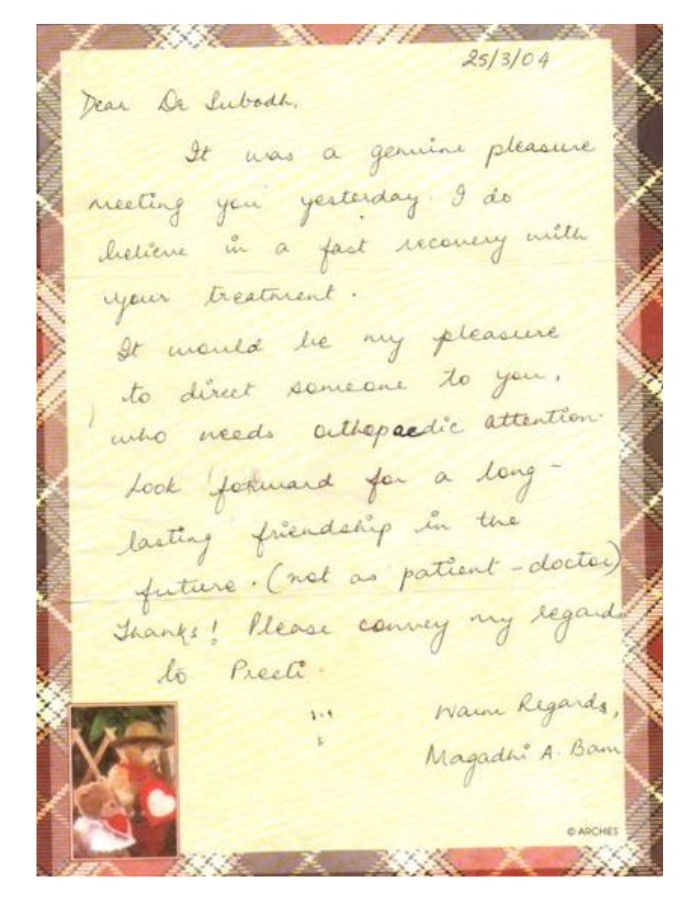 25/3/04
Dear Dr Subodh,
It was a genuine pleasure
meeting you yesterday. I do
believe in a fast recovery with
your treatment.
It would be my pleasure
to direct someone to you,
who needs orthopaedic attention.
Look forward for a long-
lasting friendship in the
future. (not as patient - doctor)
Thanks! Please convey my regards
to Preeti.
Warm Regards,
Magadhi A. Bam
© ARCHIES